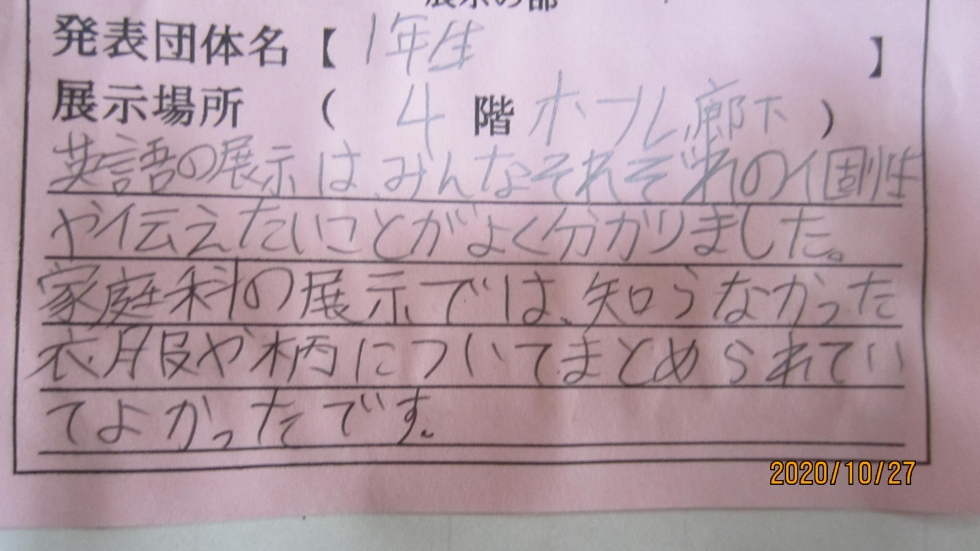 展示の部
発表団体名【1年生】
展示場所 ( 4 階 ホール、廊下 )
英語の展示は、みんなそれぞれの個性
や伝えたいことがよく分かりました。
家庭科の展示では、知らなかった
衣服や柄についてまとめられてい
てよかったです。
2020/10/27